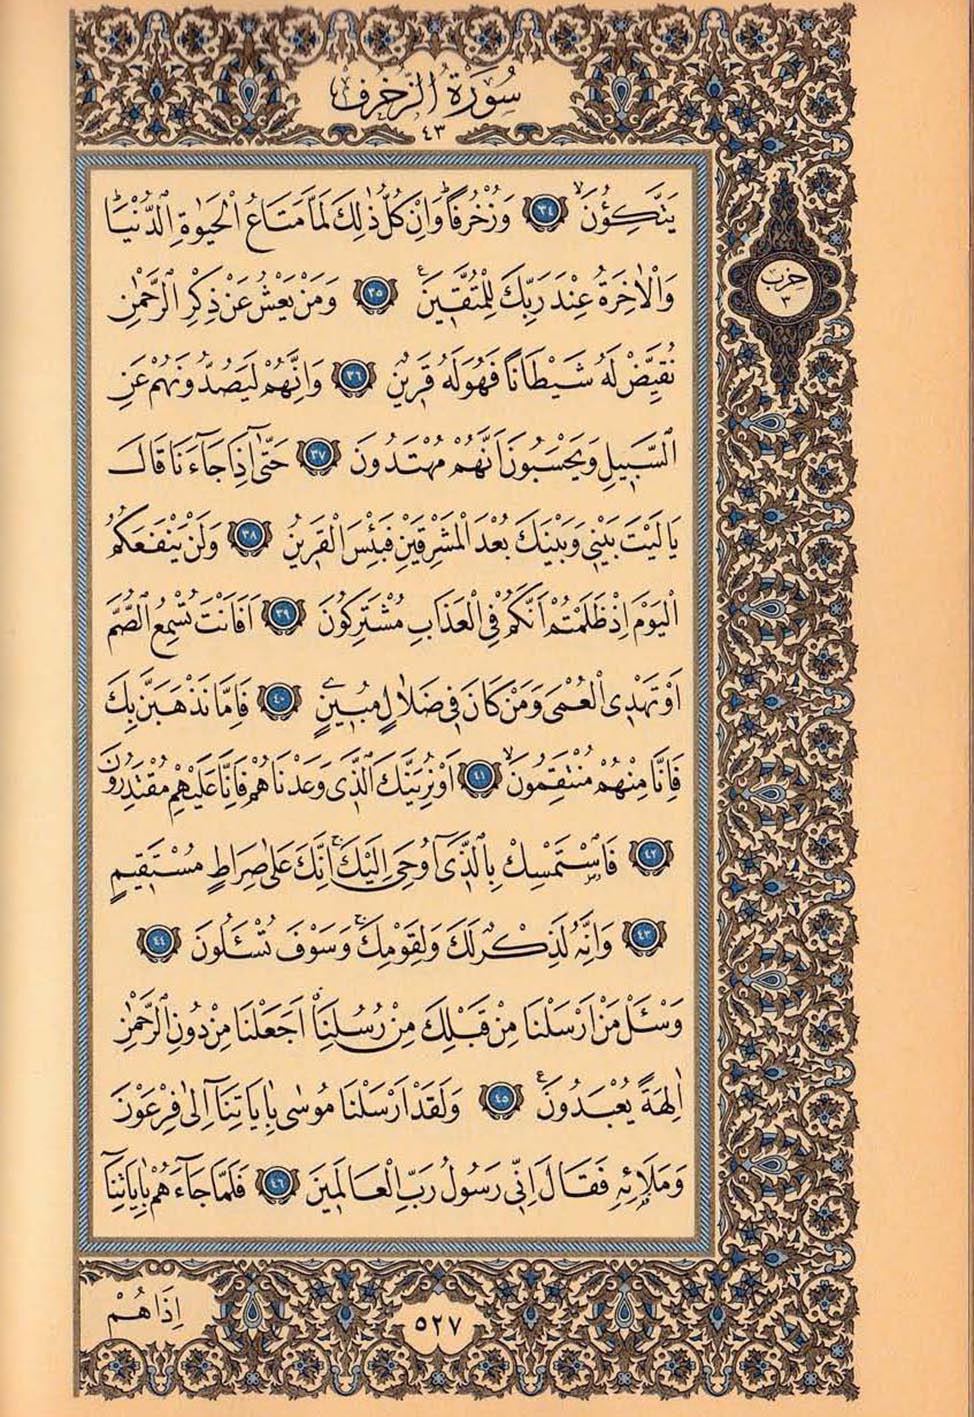 سُورَةُ الزُّخْرُفِ
٤٣
حِزْب
٣
يَتَّكِؤُنَۙ ﴿٣٤﴾ وَزُخْرُفًاۜ وَاِنْ كُلُّ ذٰلِكَ لَمَّا مَتَاعُ الْحَيٰوةِ الدُّنْيَاۜ
وَالْاٰخِرَةُ عِنْدَ رَبِّكَ لِلْمُتَّق۪ينَ۟ ﴿٣٥﴾ وَمَنْ يَعْشُ عَنْ ذِكْرِ الرَّحْمٰنِ
نُقَيِّضْ لَهُ شَيْطَانًا فَهُوَ لَهُ قَر۪ينٌ ﴿٣٦﴾ وَاِنَّهُمْ لَيَصُدُّونَهُمْ عَنِ
السَّب۪يلِ وَيَحْسَبُونَ اَنَّهُمْ مُهْتَدُونَ ﴿٣٧﴾ حَتّٰٓى اِذَا جَٓاءَنَا قَالَ
يَا لَيْتَ بَيْن۪ي وَبَيْنَكَ بُعْدَ الْمَشْرِقَيْنِ فَبِئْسَ الْقَر۪ينُ ﴿٣٨﴾ وَلَنْ يَنْفَعَكُمُ
الْيَوْمَ اِذْ ظَلَمْتُمْ اَنَّكُمْ فِي الْعَذَابِ مُشْتَرِكُونَ ﴿٣٩﴾ اَفَاَنْتَ تُسْمِعُ الصُّمَّ
اَوْ تَهْدِي الْعُمْيَ وَمَنْ كَانَ ف۪ي ضَلَالٍ مُب۪ينٍ ﴿٤٠﴾ فَاِمَّا نَذْهَبَنَّ بِكَ
فَاِنَّا مِنْهُمْ مُنْتَقِمُونَۙ ﴿٤١﴾ اَوْ نُرِيَنَّكَ الَّذ۪ي وَعَدْنَاهُمْ فَاِنَّا عَلَيْهِمْ مُقْتَدِرُونَ
﴿٤٢﴾ فَاسْتَمْسِكْ بِالَّذ۪ٓي اُو۫حِيَ اِلَيْكَۚ اِنَّكَ عَلٰى صِرَاطٍ مُسْتَق۪يمٍ
﴿٤٣﴾ وَاِنَّهُ لَذِكْرٌ لَكَ وَلِقَوْمِكَۚ وَسَوْفَ تُسْـَٔلُونَ ﴿٤٤﴾
وَسْـَٔلْ مَنْ اَرْسَلْنَا مِنْ قَبْلِكَ مِنْ رُسُلِنَاۗ اَجَعَلْنَا مِنْ دُونِ الرَّحْمٰنِ
اٰلِهَةً يُعْبَدُونَ۟ ﴿٤٥﴾ وَلَقَدْ اَرْسَلْنَا مُوسٰى بِاٰيَاتِنَٓا اِلٰى فِرْعَوْنَ
وَمَلَا۬ئِه۪ فَقَالَ اِنّ۪ي رَسُولُ رَبِّ الْعَالَم۪ينَ ﴿٤٦﴾ فَلَمَّا جَٓاءَهُمْ بِاٰيَاتِنَٓا
اِذَا هُمْ
٥٢٧